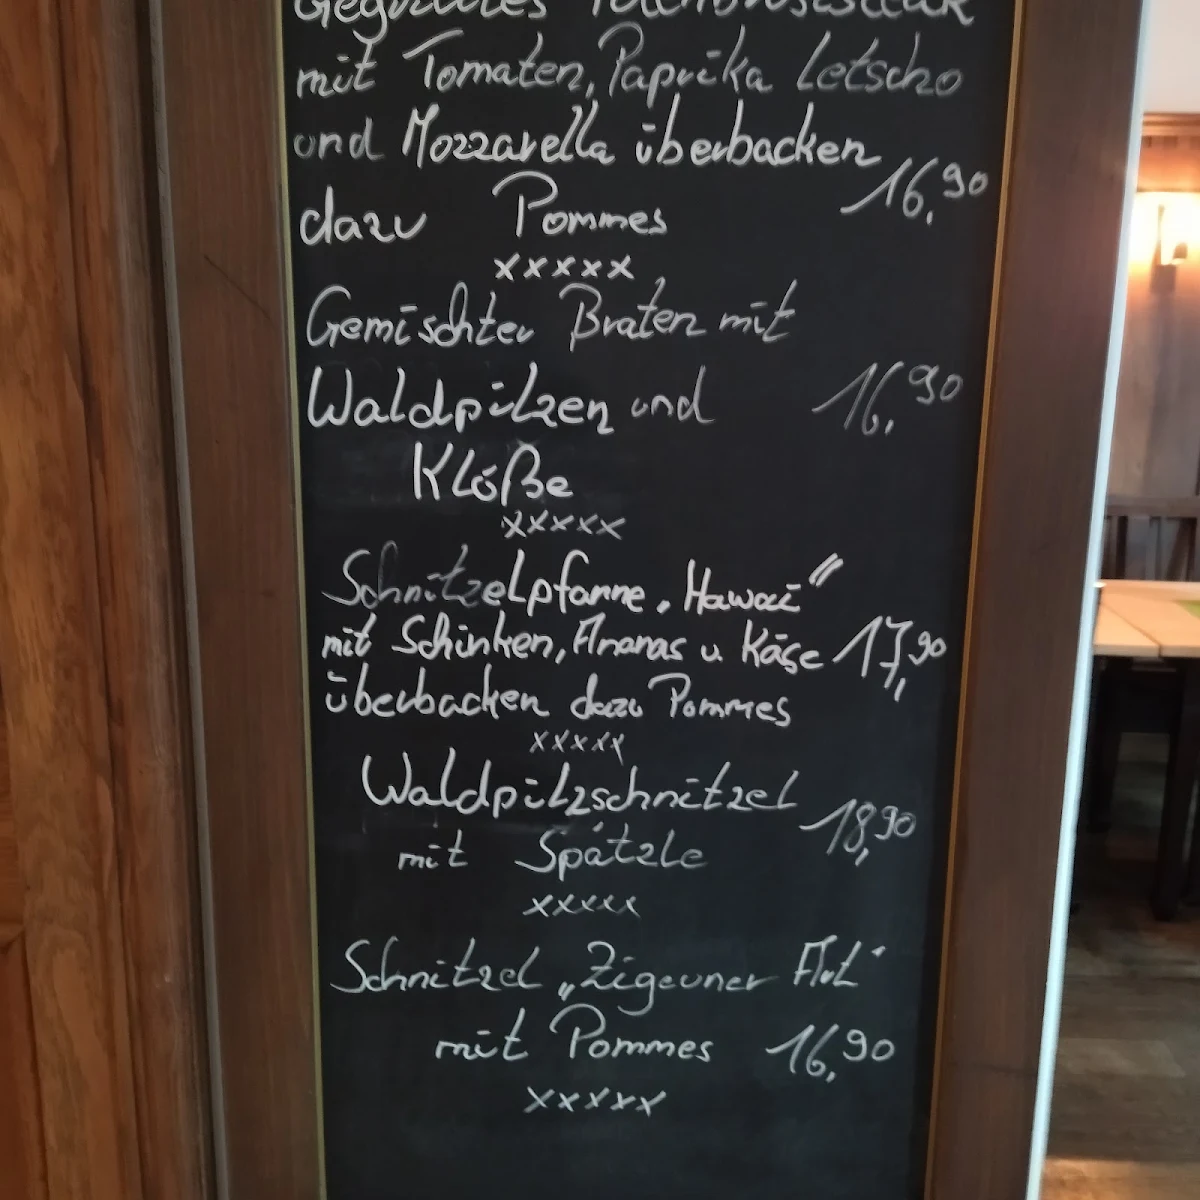 Gegrilltes
mit Tomaten, Paprika Letscho
und Mozzarella überbacken
16,90
dazu Pommes
xxxxx
Gemischter Braten mit
Waldpilzen und 16,90
Klöße
xxxxx
Schnitzelpfanne „Hawaii"
mit Schinken, Ananas u. Käse 17,90
überbacken dazu Pommes
xxxxx
Waldpilzschnitzel
mit Spätzle 18,90
xxxxx
Schnitzel „Zigeuner Art"
mit Pommes 16,90
xxxxx